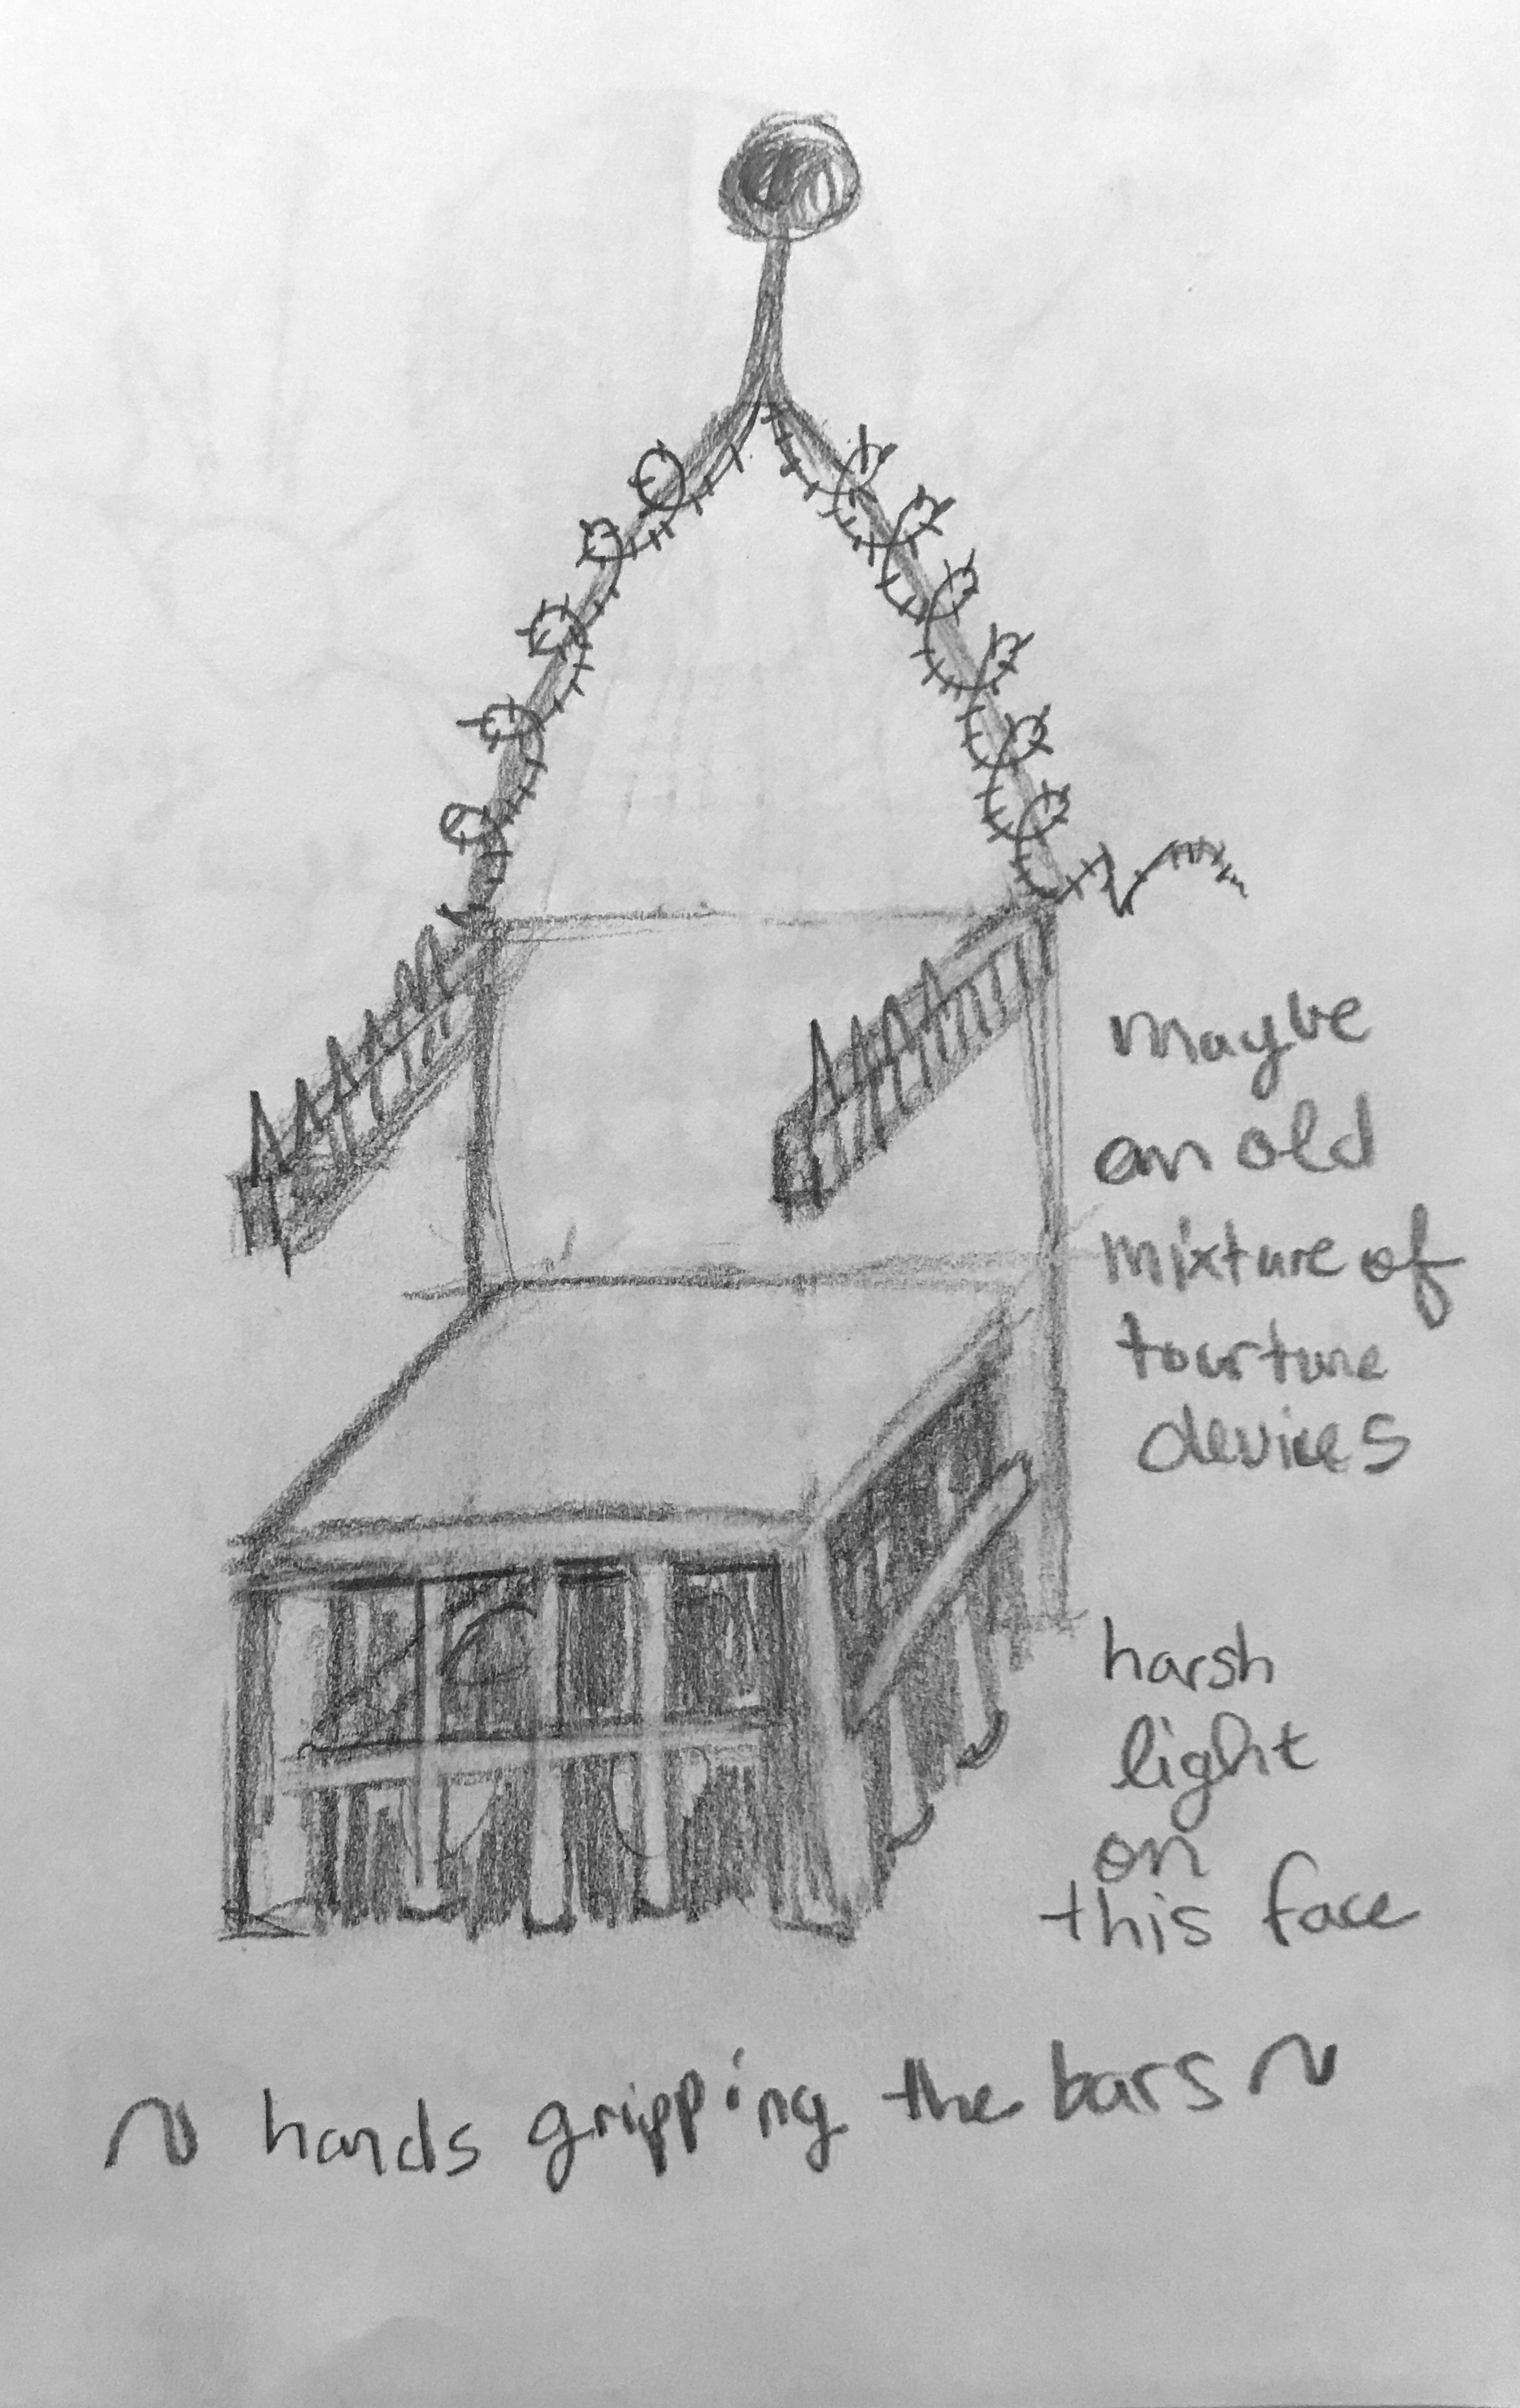 maybe
an old
mixture of
tourture
devices
harsh
light
on
this face
~ hands gripping the bars ~